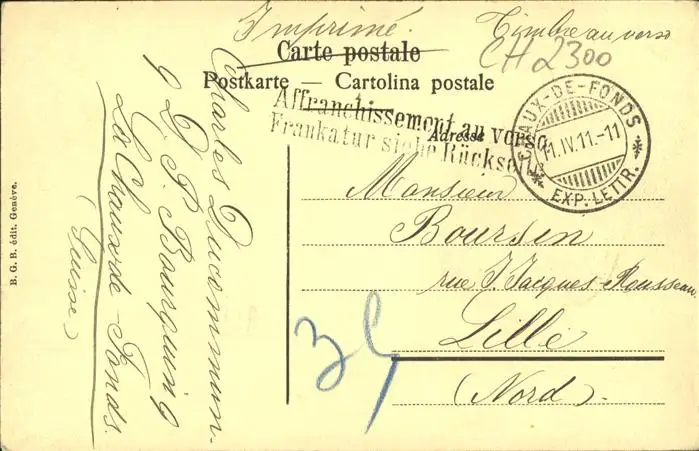 Imprimé.
Timbre au verso
CH 2300
Carte postale
Postkarte — Cartolina postale
Affranchissement au verso
Frankatur siehe Rückseite
Adresse
CHAUX-DE-FONDS
11.IV.11.-11
EXP. LETTR.
Monsieur
Boursin
rue J. Jacques-Rousseau
Lille
(Nord).
Charles Ducommun.
9 D. P. Bourquin 9
La Chaux-de-Fonds.
(Suisse)
B. G. B. édit. Genève.